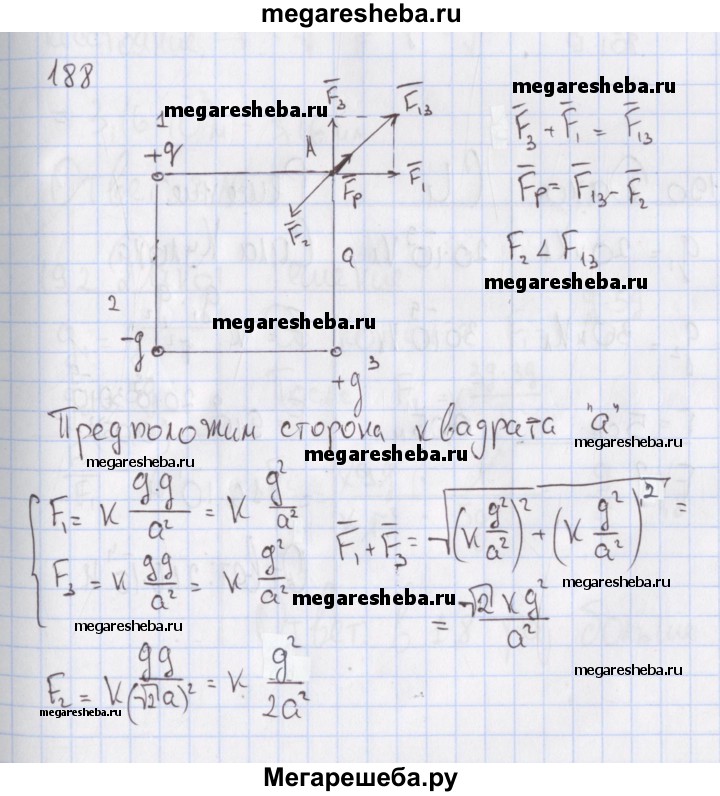 megaresheba.ru
188
1
+q
megaresheba.ru
A
F̅₃
F̅₁₃
F̅₁
F̅ₚ
F̅₂
a
F̅₃ + F̅₁ = F̅₁₃
F̅ₚ = F̅₁₃ - F̅₂
F₂ < F₁₃
megaresheba.ru
2
-q
megaresheba.ru
3
+q
Предположим сторона квадрата "a"
megaresheba.ru megaresheba.ru megaresheba.ru
F₁ = k q·q/a² = k q²/a²
F₃ = k qq/a² = k q²/a²
F̅₁ + F̅₃ = √((k q²/a²)² + (k q²/a²)²) =
megaresheba.ru megaresheba.ru
= √2 k q²/a²
megaresheba.ru
F₂ = k qq/(√2 a)² = k q²/2a²
megaresheba.ru megaresheba.ru
Мегарешеба.ру